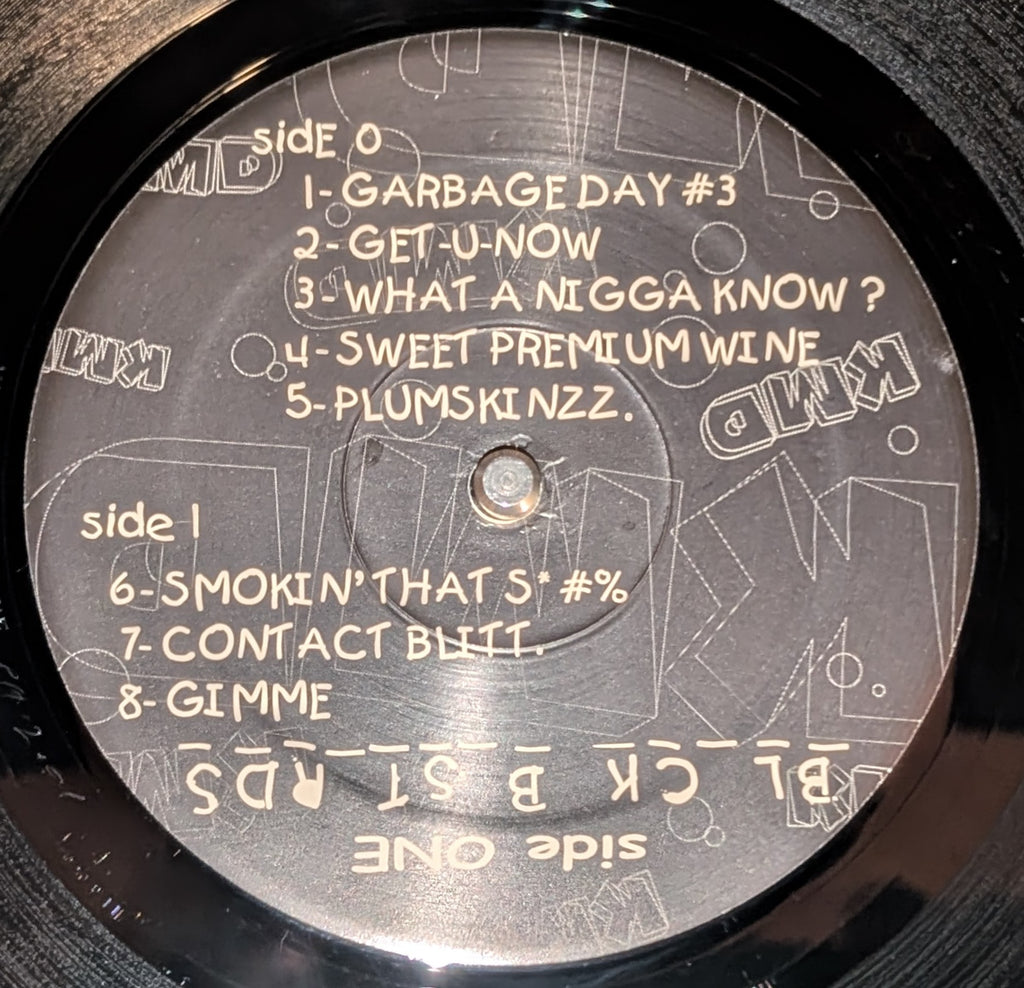 sidE 0
1-GARBAGE DAY #3
2-GET-U-NOW
3-WHAT A NIGGA KNOW ?
4-SWEET PREMIUM WINE
5-PLUMSKINZZ.
side 1
6-SMOKIN' THAT S* #%
7-CONTACT BLITT.
8-GIMME
BL_CK B_ST_RDS
side ONE
KMD
KMD
KMD
KMD
KMD